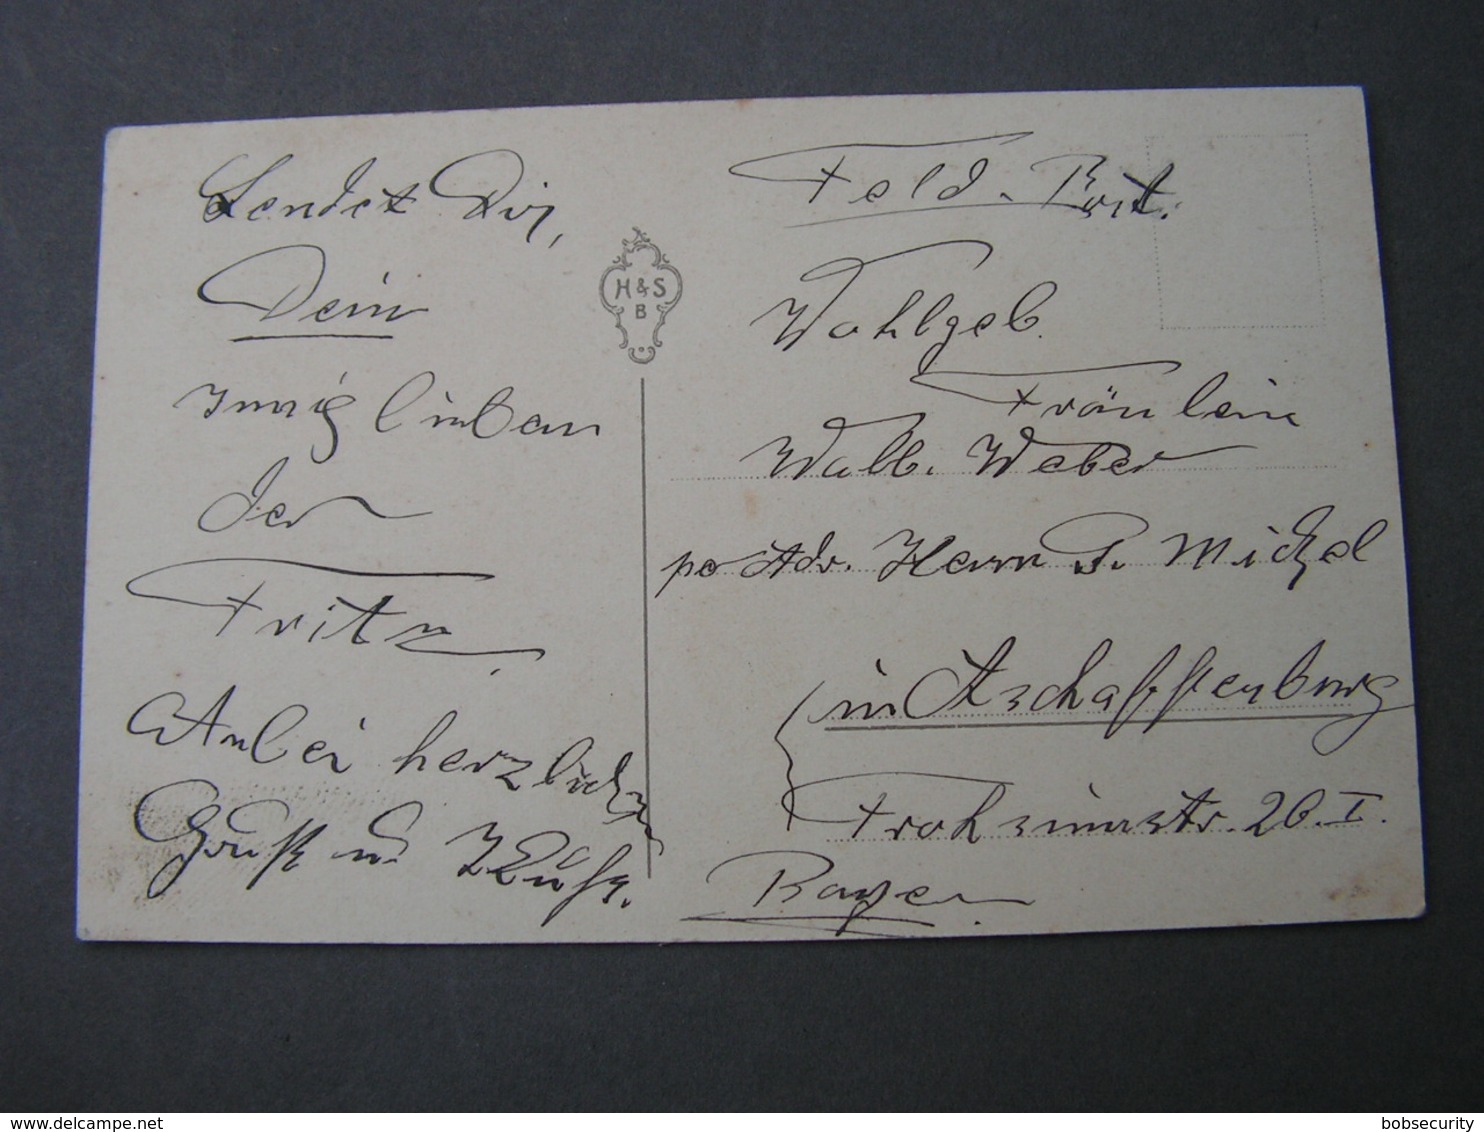 Sendet Dir,
Dein
innig lieben
der
Fritz.
Anbei herzlichen
Gruß u. Küße.
H&S
B
Feld-Post.
Wohlgeb.
Fräulein
Walb. Weber
pr Adr. Herrn P. Mickel
in Aschaffenburg
Frohsinnstr. 26. I.
Bayern.
bobsecurity